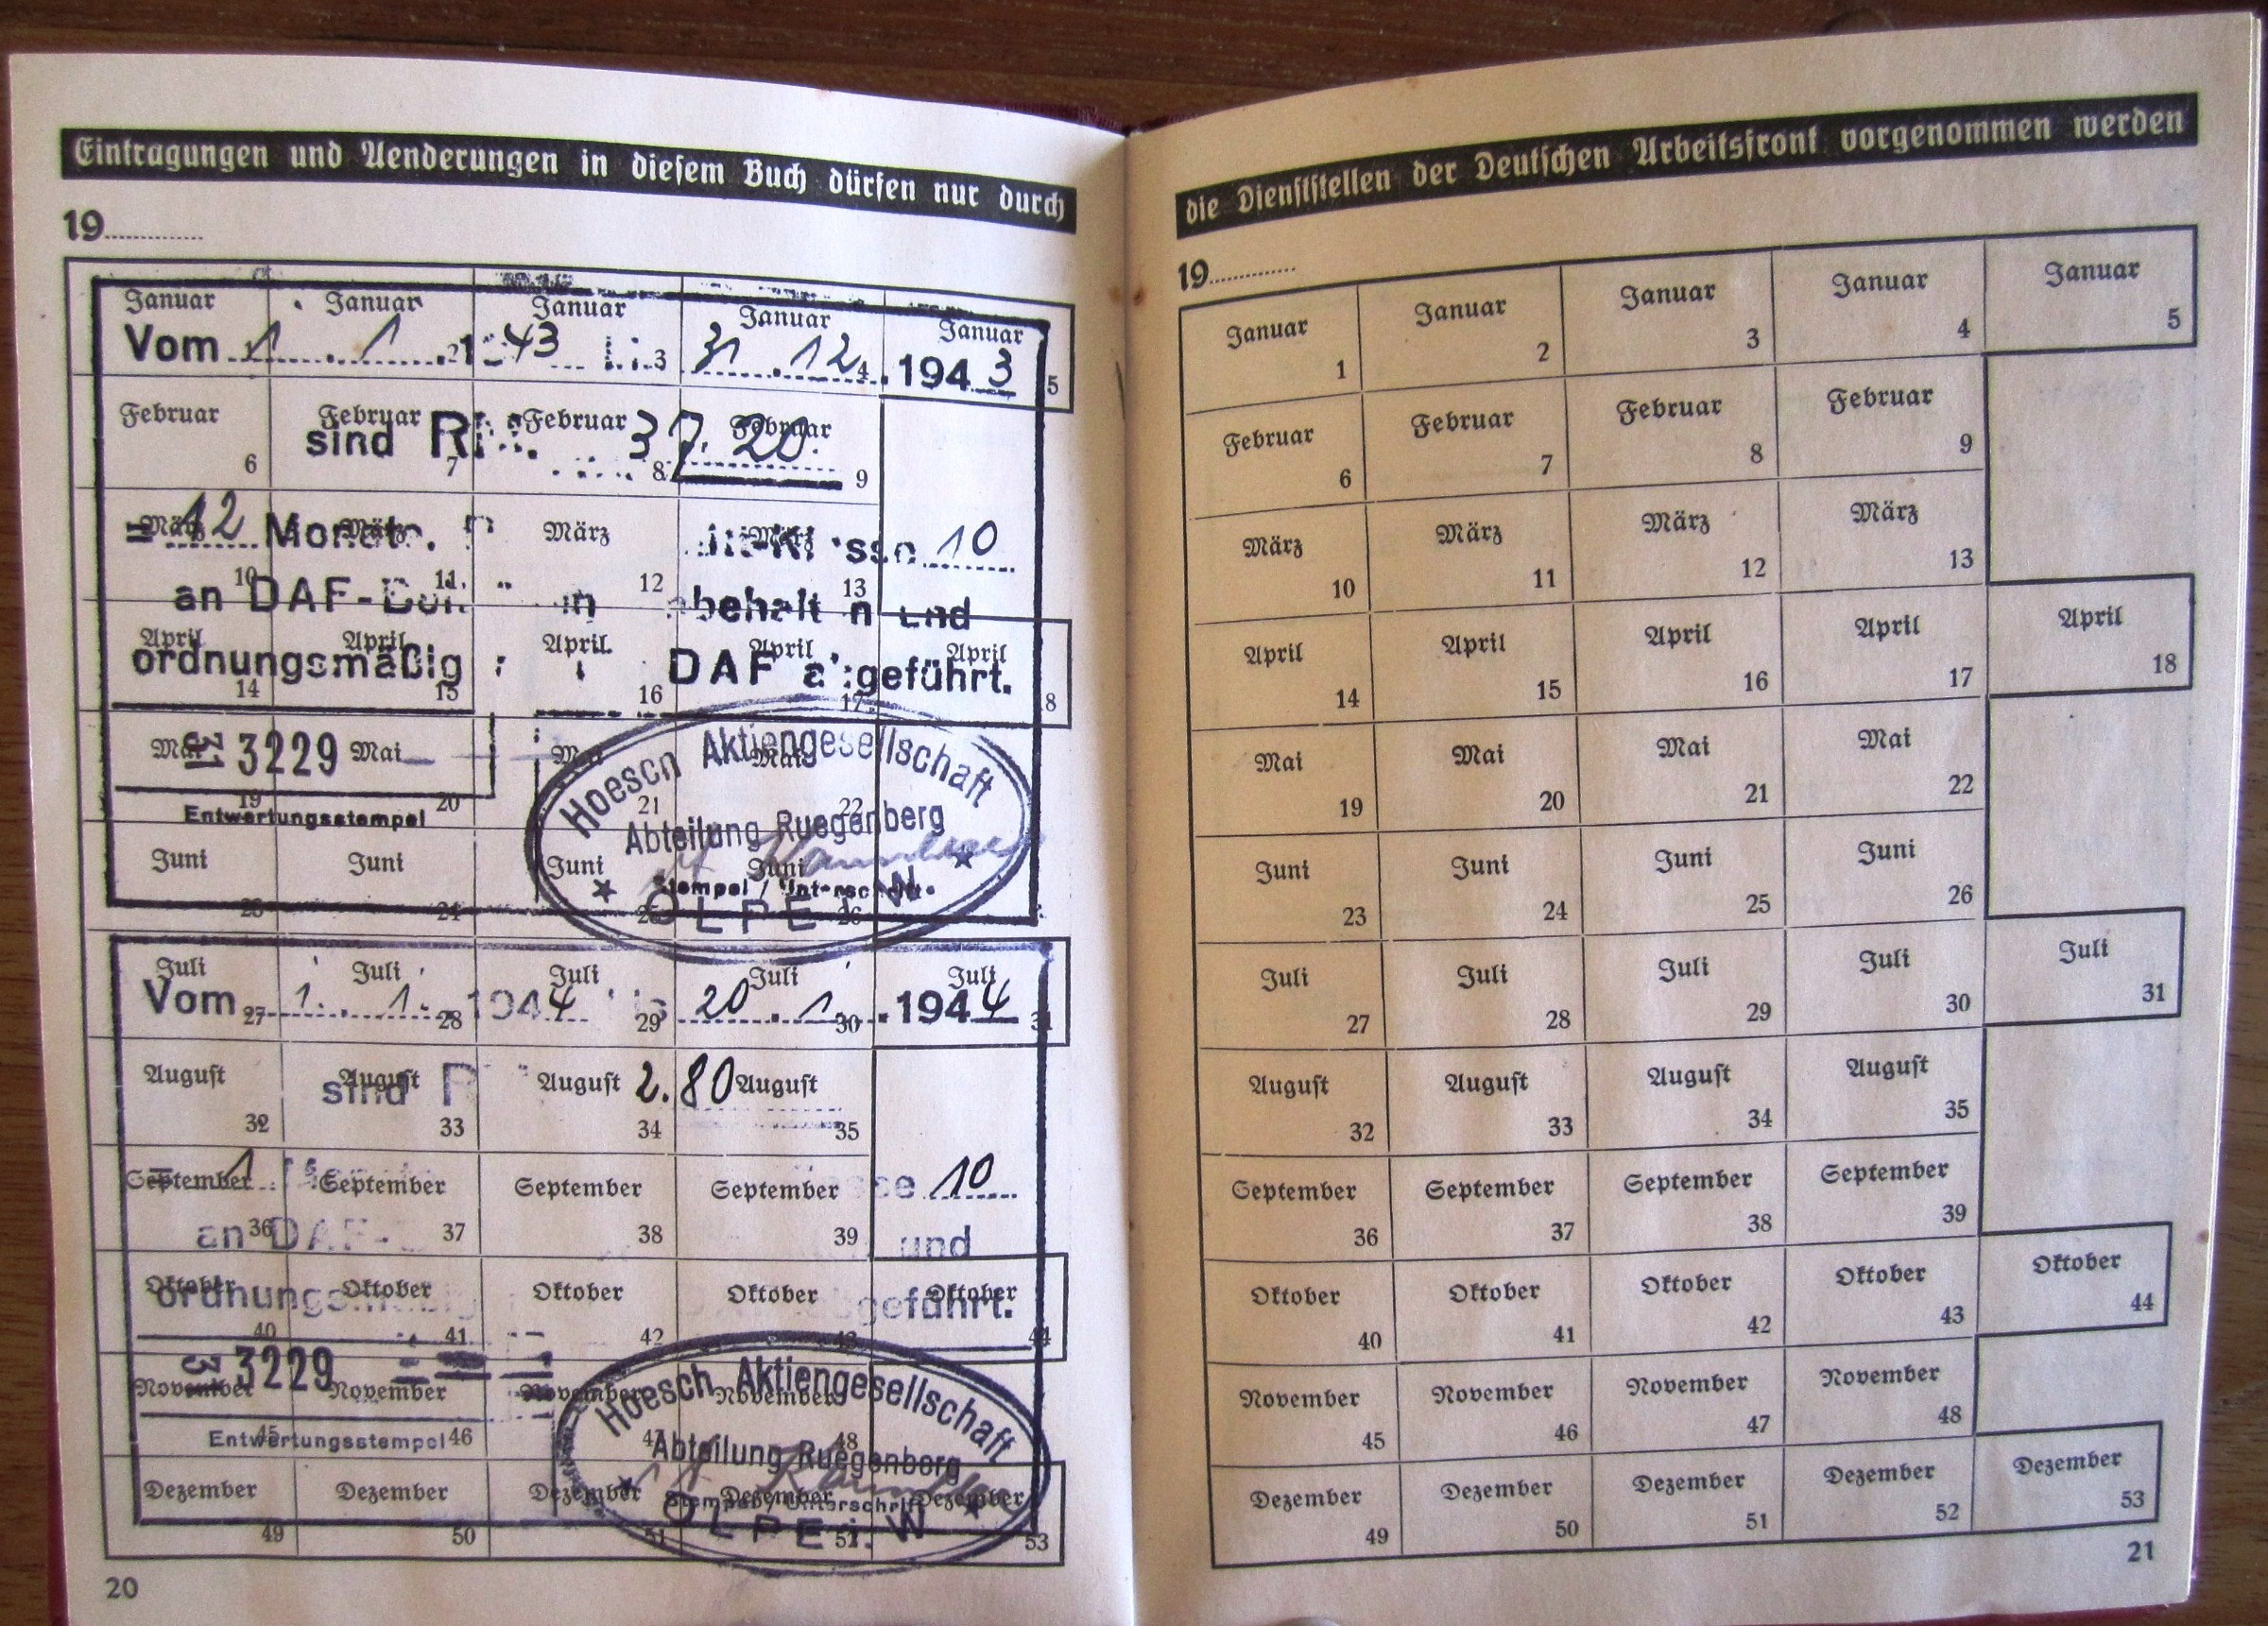 Eintragungen und Aenderungen in diesem Buch dürfen nur durch
19
Januar Januar Januar Januar Januar
Vom 1. 1. 1943 31. 12. 1943
2 3 4 5
Februar Februar Februar Februar
sind 37.20.
6 7 8 9
März März März März
= 12 Monate. 10
10 11 12 13
an DAF- und
April April April April April
ordnungsmäßig DAF abgeführt.
14 15 16 17 18
Mai Mai Mai Mai
3229
19 20 21 22
Entwertungsstempel
Hoesch Aktiengesellschaft
Abteilung Ruegenberg
Juni Juni Juni Juni
Stempel / Unterschrift
OLPE i. W.
23 24 25 26
Juli Juli Juli Juli Juli
Vom 1. 1. 1944 bis 20. 1. 1944
27 28 29 30 31
August August August August
sind 2.80
32 33 34 35
September September September September
= 1 10
36 37 38 39
an DAF- und
Oktober Oktober Oktober Oktober Oktober
ordnungsmäßig abgeführt.
40 41 42 43 44
3229
November November November November
45 46 47 48
Entwertungsstempel
Hoesch Aktiengesellschaft
Abteilung Ruegenberg
Dezember Dezember Dezember Dezember Dezember
Stempel / Unterschrift
OLPE i. W
49 50 51 52 53
20
die Dienststellen der Deutschen Arbeitsfront vorgenommen werden
19
Januar Januar Januar Januar Januar
1 2 3 4 5
Februar Februar Februar Februar
6 7 8 9
März März März März
10 11 12 13
April April April April April
14 15 16 17 18
Mai Mai Mai Mai
19 20 21 22
Juni Juni Juni Juni
23 24 25 26
Juli Juli Juli Juli Juli
27 28 29 30 31
August August August August
32 33 34 35
September September September September
36 37 38 39
Oktober Oktober Oktober Oktober Oktober
40 41 42 43 44
November November November November
45 46 47 48
Dezember Dezember Dezember Dezember Dezember
49 50 51 52 53
21